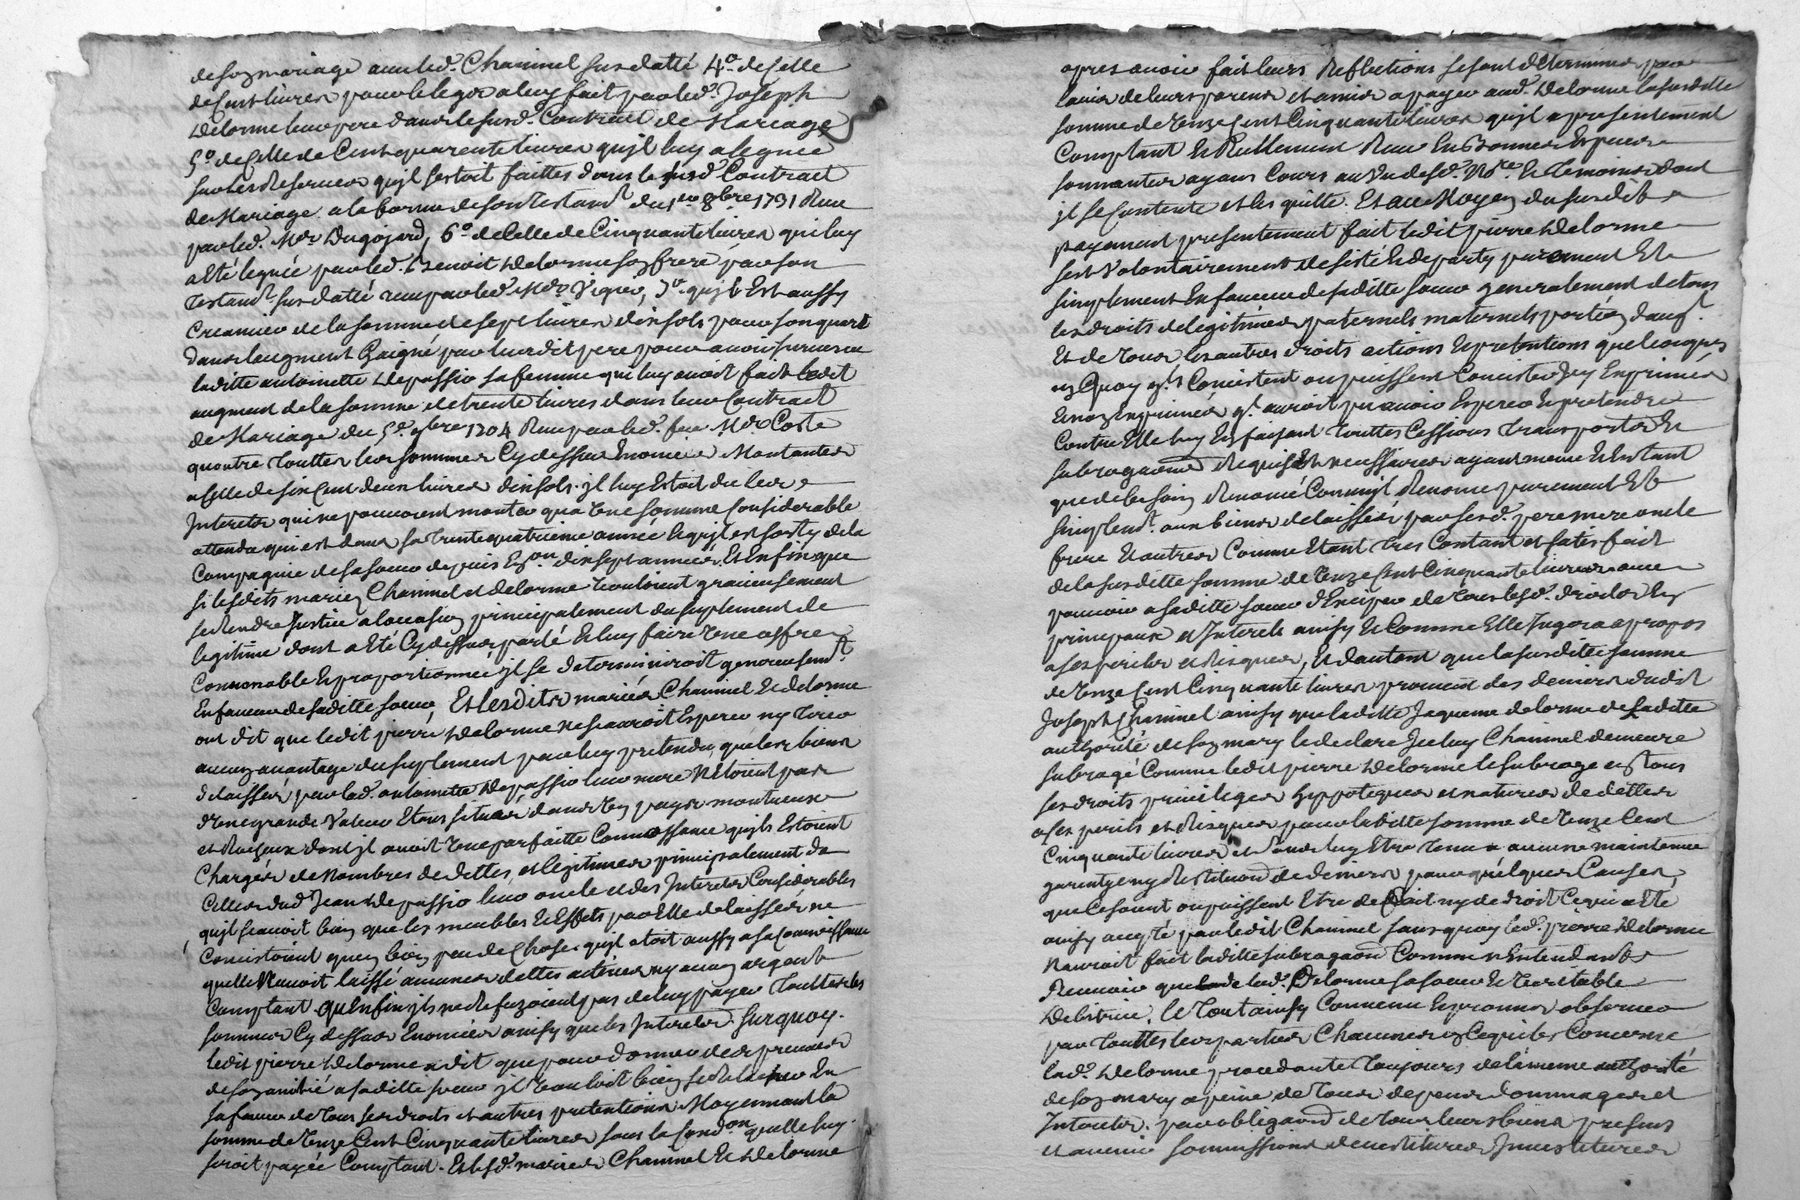 de son mariage avec led. Chaminel susdatté 4º. de celle
de cent livres pour le legat a luy fait par led. Joseph
Delorme leur pere dans le susd. Contract de Mariage
5º de Celle de Cent quarente livres qu'il luy a leguée
sur les Reserves qu'il sestoit faittes dans le susd. Contract
de Mariage a la forme de son Testamt. du 1er 8bre 1731 Receu
par led. Me Dugojard, 6º de Celle de Cinquante livres qui luy
a eté leguée par led. Benoit Delorme son frere par son
Testamt. susdatté receu par led. Me Vigier, qu'il Est aussy
Creancier de la somme de sept livres dix sols pour son quart
dans laugment Gaigné par leurdit pere pour avoir survescu
laditte antoinette Depassio sa femme qui luy avoit fait ledit
augment de la somme de trente livres dans leur Contract
de Mariage du 5e. 9bre 1704 Receu par led. feu Me Coste
quoutre Touttes les sommes Cy dessus Enoncées Montantes
a celle de six Cent deux livres dix sols. il luy Estoit dû les
Interets qui ne pouvoient monter qua Une somme Considerable
attendu qui est dans sa trente quatrieme année Et qu'il est sorty de la
Compagnie de sa soeur depuis Envon. dix sept années. Et Enfin que
si lesdits mariez Chaminel et Delorme vouloient gracieusement
se Rendre Justice a loccasion principalement du suplement de
legitime dont a Eté Cy dessus parlé Et luy faire Une offre
Convenable Et proportionnée il se determineroit genereusemt.
En faveur de saditte soeur Et lesdits mariés Chaminel Et delorme
ont dit que ledit pierre Delorme ne scauroit Esperer ny Tirer
aucun avantage du suplement par luy pretendu que les biens
delaissés par lad. antoinette Depassio leur mere N'Etoient pas
d'une grande Valeur Etans situés dans Un pays montueux
et dont il avoit Une parfaitte Connoissance qu'ils Estoient
Chargés de Nombres de dettes, et legitimes principalement de
Celles dud. Jean Depassio leur oncle et des Interets Considerables
qu'il scavoit bien que les meubles Et Effets par Elle delaissés ne
Consistoient qu'en bien peu de Chose. qu'il etoit aussy a sa Connoissance
quelle N'avoit laissé aucunes dettes actives ny aucun argent
Comptant quEnfin ils ne Refuzoient pas de luy payer Touttes les
sommes Cy dessus Enoncées ainsy que les Interets. Surquoy.
ledit pierre Delorme a dit que pour donner des preuves
de son amitié a saditte soeur il vouloit bien se En
sa faveur de Tous ses droits et autres pretentions Moyennant la
somme de Unze Cent Cinquante livres sous la Condon. quelle luy
seroit payée Comptant. Et lesd. mariés Chaminel Et Delorme
apres avoir fait leurs Reflections se sont determinés par
lavis de leurs parens et amis a payer aud. Delorme la susditte
somme de Unze Cent Cinquante livres qu'il a presentement
Comptant Et Reellement Receu En bonnes Especes
sonnantes ayans Cours au Vu desd. Nore. Et Temoins dont
il se Contente et les quitte. Et au Moyen du susdit
payement presentement fait ledit pierre Delorme
sest Volontairement desisté Et departy purement Et
simplement En faveur de saditte soeur generalement de tous
les droits de legitimes paternels maternels portion daugt.
Et de Tous les autres droits actions Et pretentions quelconques
en Quoy qls Consistent ou puissent Consister icy Exprimés
Et non Exprimés ql auroit pu avoir Esperer Et pretendre
Contre Elle luy En faisant Touttes Cessions Transports Et
subrogaons Requises et necessaires ayant meme Et En tant
que de besoin Renoncé Comme il Renonce purement Et
simplemt. aux biens delaissés par sesd. pere mere oncle
frere Et autres Comme Etant Tres Contant et satisfait
de la susditte somme de Unze Cent Cinquante livres avec
pouvoir a saditte soeur dExiger de Tous lesd. droits En
principaux et Interets ainsy Et Comme Elle Jugera a propos
a ses perils et Risques, Et dautant que la susditte somme
de Unze Cent Cinquante livres provient des deniers dudit
Joseph Chaminel ainsy que laditte Jaqueme delorme de saditte
authorité de son mary le declare Jceluy Chaminel demeure
subrogé Comme ledit pierre Delorme le subroge en Tous
ses droits privileges hyppoteques et natures de dettes
a ses perils et Risques pour laditte somme de Unze Cent
Cinquante livres et sans luy Etre Tenu a aucune maintenue
garentye ny Restituaon de deniers pour quelques Causes
que Ce soient ou puissent Etre de fait ny de droit Ce qui a Eté
ainsy accepté par ledit Chaminel sans quoy led. pierre Delorme
Nauroit fait laditte subrogaon Comme nEntendant
que lad. Delorme sa soeur Et Veritable
Debitrice, le Tout ainsy Convenu Et promis observer
par Touttes les parties Chacunes En Ce qui les Concerne
Lad. Delorme procedante Toujours de la meme authorité
de son mary a peine de Tous depens dommages et
Interets. par obligaon de Tous leurs biens presens
et avenir soumissions Renonciations